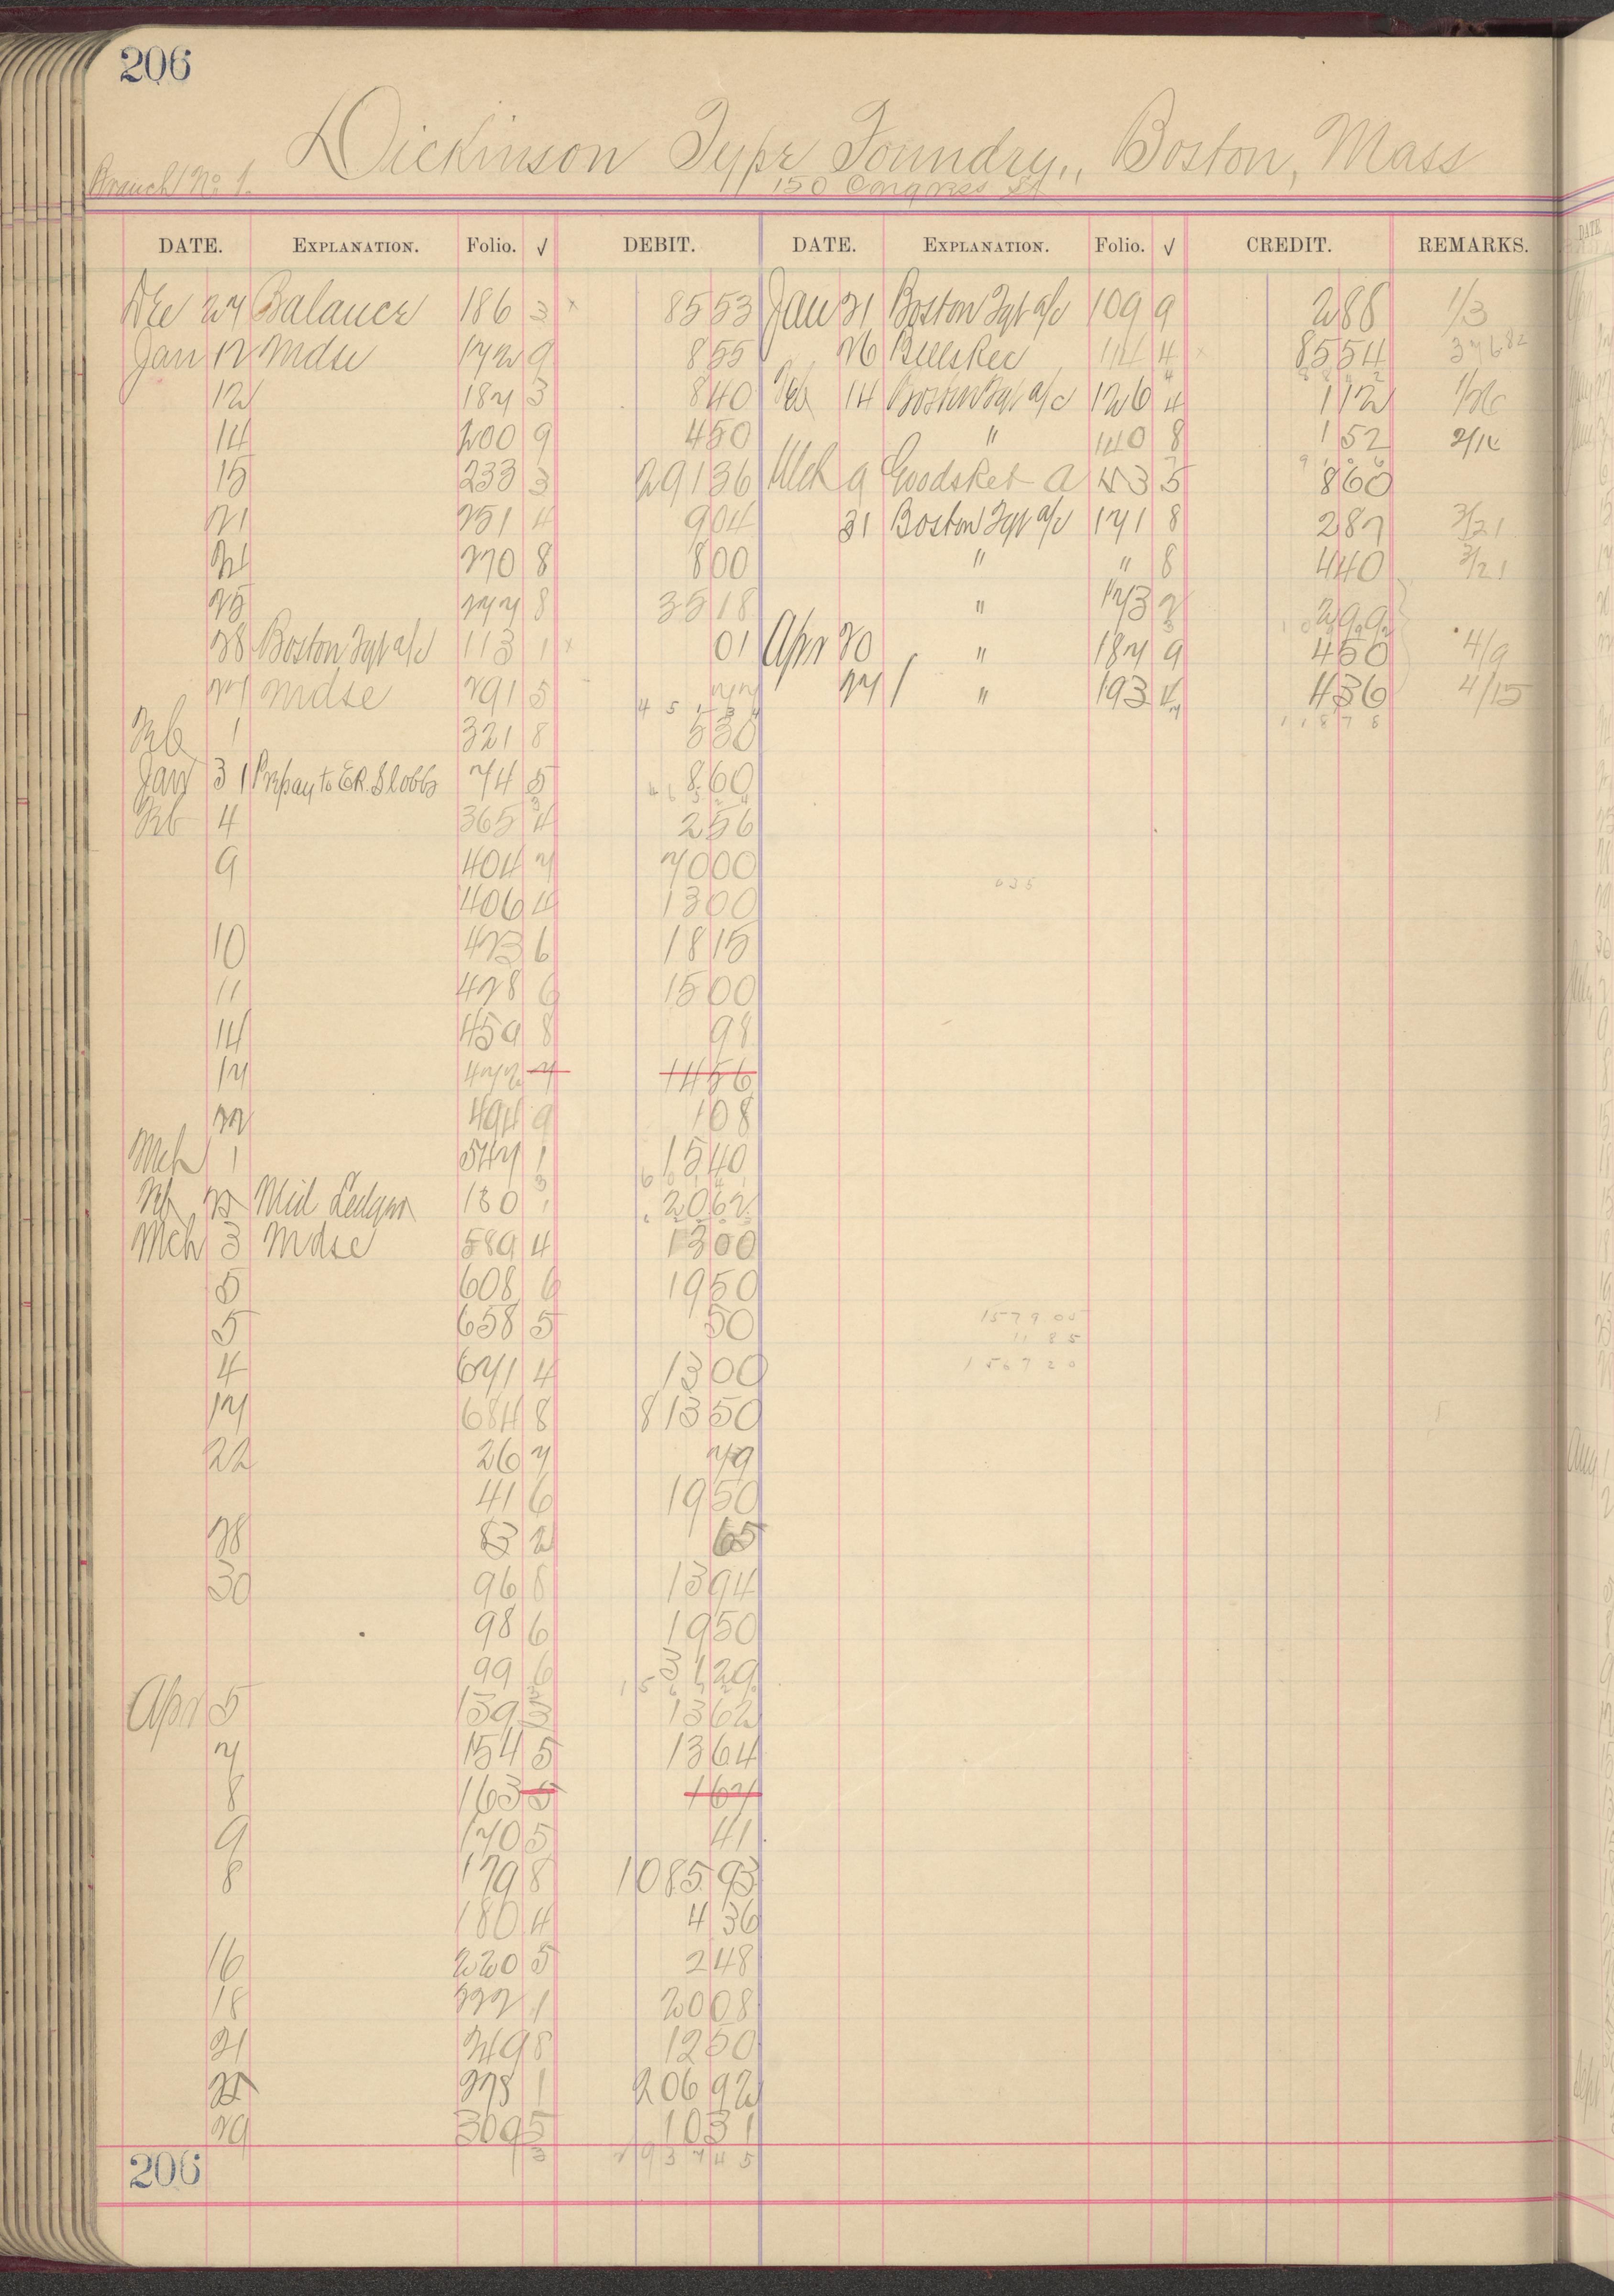 206
Dickinson Type Foundry,, Boston, Mass
Branch No 1. 150 Congress St
DATE. EXPLANATION. Folio. √ DEBIT. DATE. EXPLANATION. Folio. √ CREDIT. REMARKS.
Dec 27 Balance 186 3 x 8553 Jan 21 Boston Typ a/c 109 9 288 1/3
Jan 12 Mdse 172 9 855 26 Bills Rec 114 4 x 8554 37682
12 187 3 840 Feb 14 Boston Typ a/c 126 4 112 1/26
14 200 9 450 " 140 8 152
15 233 3 29136 Mch 9 Goods Ret A 53 5 860
21 251 4 904 31 Boston Typ a/c 171 8 287 3/21
21 270 8 800 " " 8 440 3/21
25 277 8 3518 " 173 2 299
28 Boston Typ a/c 113 1 x 01 Apr 20 " 187 9 450 4/9
27 Mdse 291 5 77 27 " 193 4 436 4/15
4 5 1 3 4 1 1 8 7 8
Feb 1 321 8 530
Jan 31 Prepay to E.R. Slobbs 74 5 860
Feb 4 365 4 256
9 404 7 7000
406 4 1300
10 423 6 1815
11 428 6 1500
14 459 8 98
17 472 7 1456
22 494 9 108
Mch 1 547 1 1540
Feb 25 Mid Ledger 130 1 2062
Mch 3 Mdse 589 4 1300
5 608 6 1950
5 658 5 50 157905
1185
4 671 4 1300 156720
17 684 8 81350
22 26 7 79
41 6 1950
28 83 2 65
30 96 8 1394
98 6 1950
99 6 3129
Apr 5 139 3 1362
7 154 5 1364
8 163 5 167
9 170 5 41
8 179 8 108593
180 4 436
16 220 5 248
18 222 1 2008
21 249 8 1250
25 278 1 20692
29 309 5 1031
3 293745
206